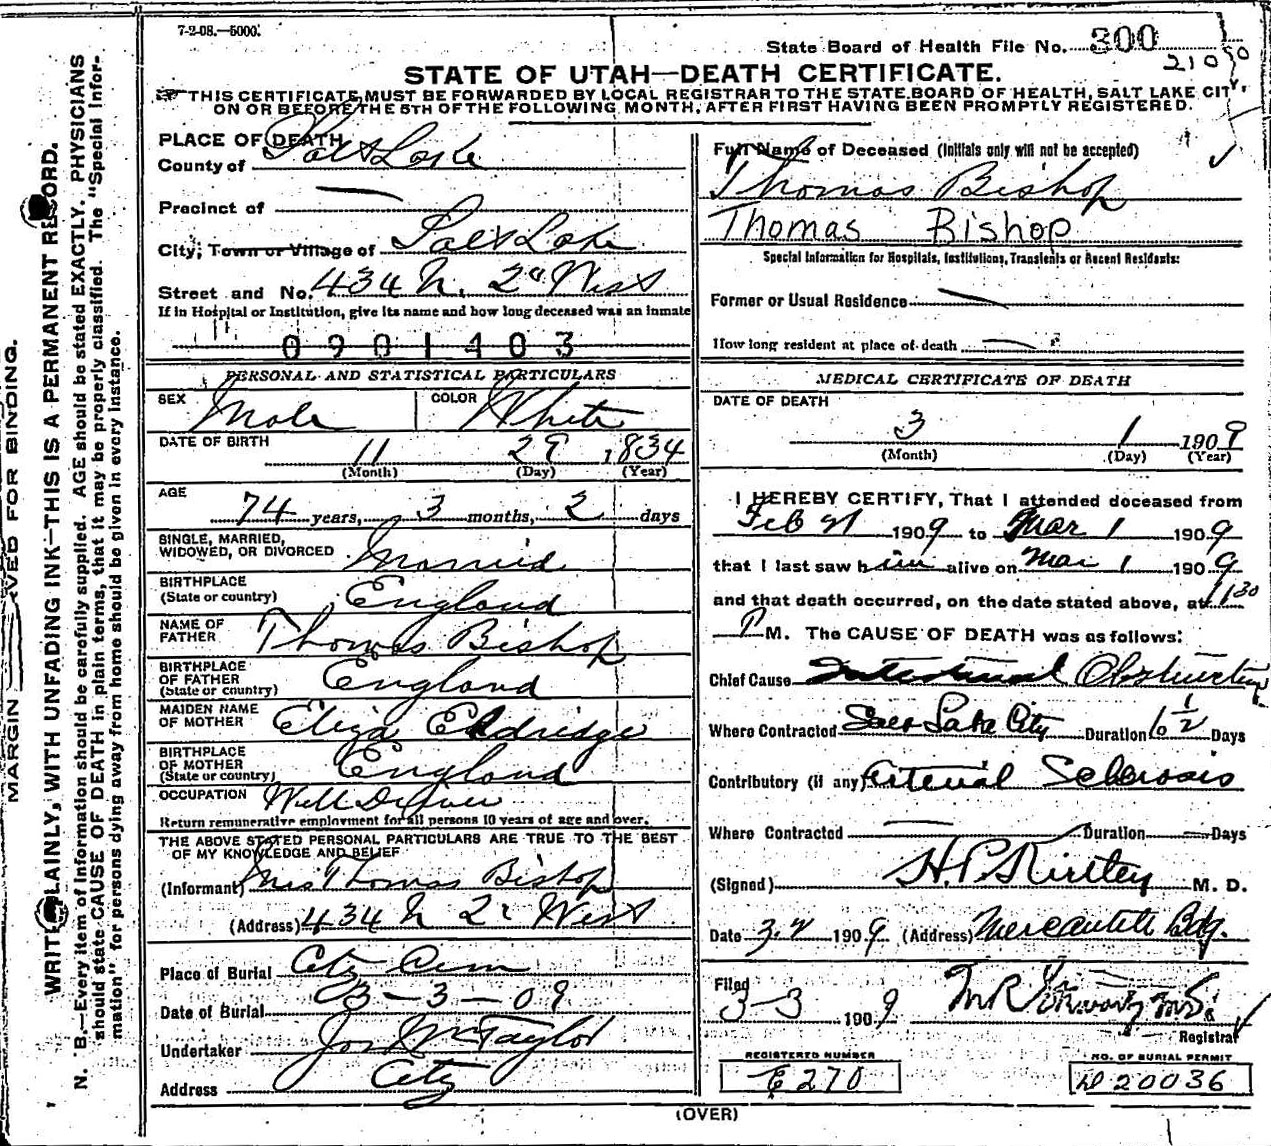 7-2-08.—5000.
State Board of Health File No. 300
210
STATE OF UTAH—DEATH CERTIFICATE.
THIS CERTIFICATE MUST BE FORWARDED BY LOCAL REGISTRAR TO THE STATE BOARD OF HEALTH, SALT LAKE CITY,
ON OR BEFORE THE 5TH OF THE FOLLOWING MONTH, AFTER FIRST HAVING BEEN PROMPTLY REGISTERED.
MARGIN RESERVED FOR BINDING.
WRITE PLAINLY, WITH UNFADING INK—THIS IS A PERMANENT RECORD.
N. B.—Every item of Information should be carefully supplied. AGE should be stated EXACTLY. PHYSICIANS
should state CAUSE OF DEATH in plain terms, that it may be properly classified. The "Special Infor-
mation" for persons dying away from home should be given in every instance.
PLACE OF DEATH
County of Salt Lake
Precinct of —
City, Town or Village of Salt Lake
Street and No. 434 N. 2d West
If in Hospital or Institution, give its name and how long deceased was an inmate
0901403
PERSONAL AND STATISTICAL PARTICULARS
SEX Male COLOR White
DATE OF BIRTH
11 29 1834
(Month) (Day) (Year)
AGE
74 years, 3 months, 2 days
SINGLE, MARRIED,
WIDOWED, OR DIVORCED Married
BIRTHPLACE
(State or country) England
NAME OF
FATHER Thomas Bishop
BIRTHPLACE
OF FATHER
(State or country) England
MAIDEN NAME
OF MOTHER Eliza Eldridge
BIRTHPLACE
OF MOTHER
(State or country) England
OCCUPATION Well Driver
Return remunerative employment for all persons 10 years of age and over.
THE ABOVE STATED PERSONAL PARTICULARS ARE TRUE TO THE BEST
OF MY KNOWLEDGE AND BELIEF
(Informant) Mrs Thomas Bishop
(Address) 434 N 2d West
Place of Burial City Cem
Date of Burial 3-3-09
Undertaker Jos Wm Taylor
Address City
Full Name of Deceased (Initials only will not be accepted)
Thomas Bishop
Thomas Bishop
Special Information for Hospitals, Institutions, Transients or Recent Residents:
Former or Usual Residence —
How long resident at place of death —
MEDICAL CERTIFICATE OF DEATH
DATE OF DEATH
3 1 1909
(Month) (Day) (Year)
I HEREBY CERTIFY, That I attended deceased from
Feb 21 1909 to Mar 1 1909
that I last saw him alive on Mar 1 1909
and that death occurred, on the date stated above, at 11 30
P M. The CAUSE OF DEATH was as follows:
Chief Cause Intestinal Obstruction
Where Contracted Salt Lake City Duration 6 1/2 Days
Contributory (if any) Arterial Sclerosis
Where Contracted — Duration — Days
(Signed) H.P. Kirtley M. D.
Date 3.2 1909 (Address) Mercantile Bdg.
Filed
3-3 1909
Registrar
REGISTERED NUMBER
E270
NO. OF BURIAL PERMIT
D 20036
(OVER)